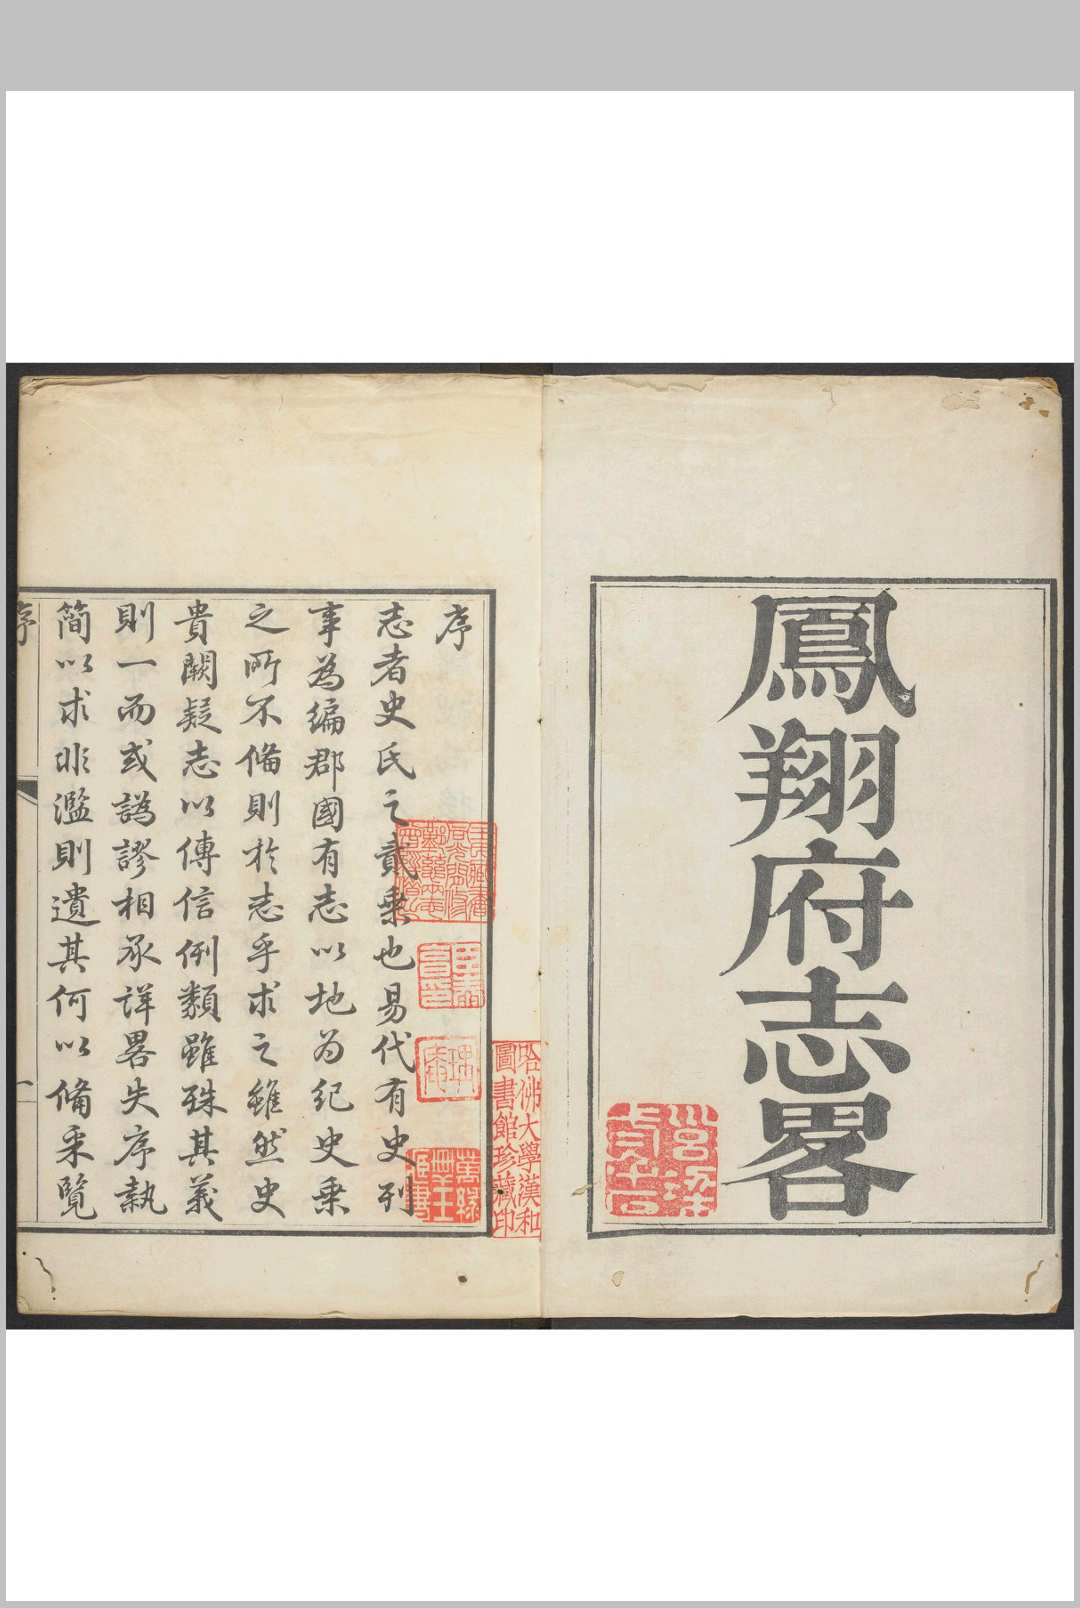 鳳翔府志畧
序
志者史氏之貳乗也易代有史列
事為編郡國有志以地為紀史乗
之所不備則於志乎求之雖然史
貴闕疑志以傳信例類雖殊其義
則一而或譌謬相承詳畧失序執
簡以求非濫則遺其何以備采覽
序
一
哈佛大學漢和
圖書館珍藏印